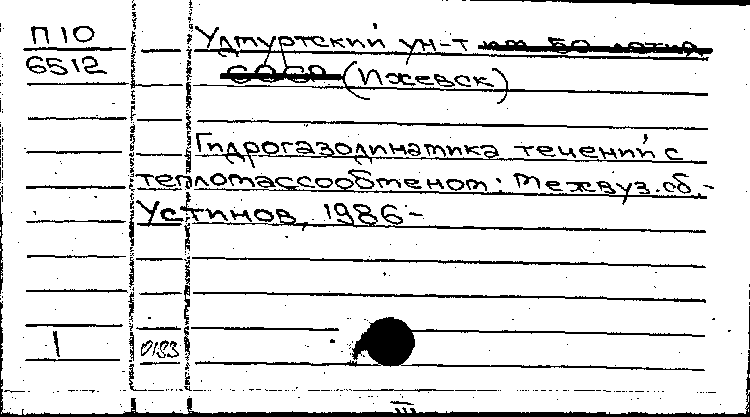 П10
6512
Удмуртский ун-т им. 50-летия
СССР (Ижевск)
Гидрогазодинамика течений с
тепломассообменом: Межвуз. сб.-
Устинов, 1986-
1
0183